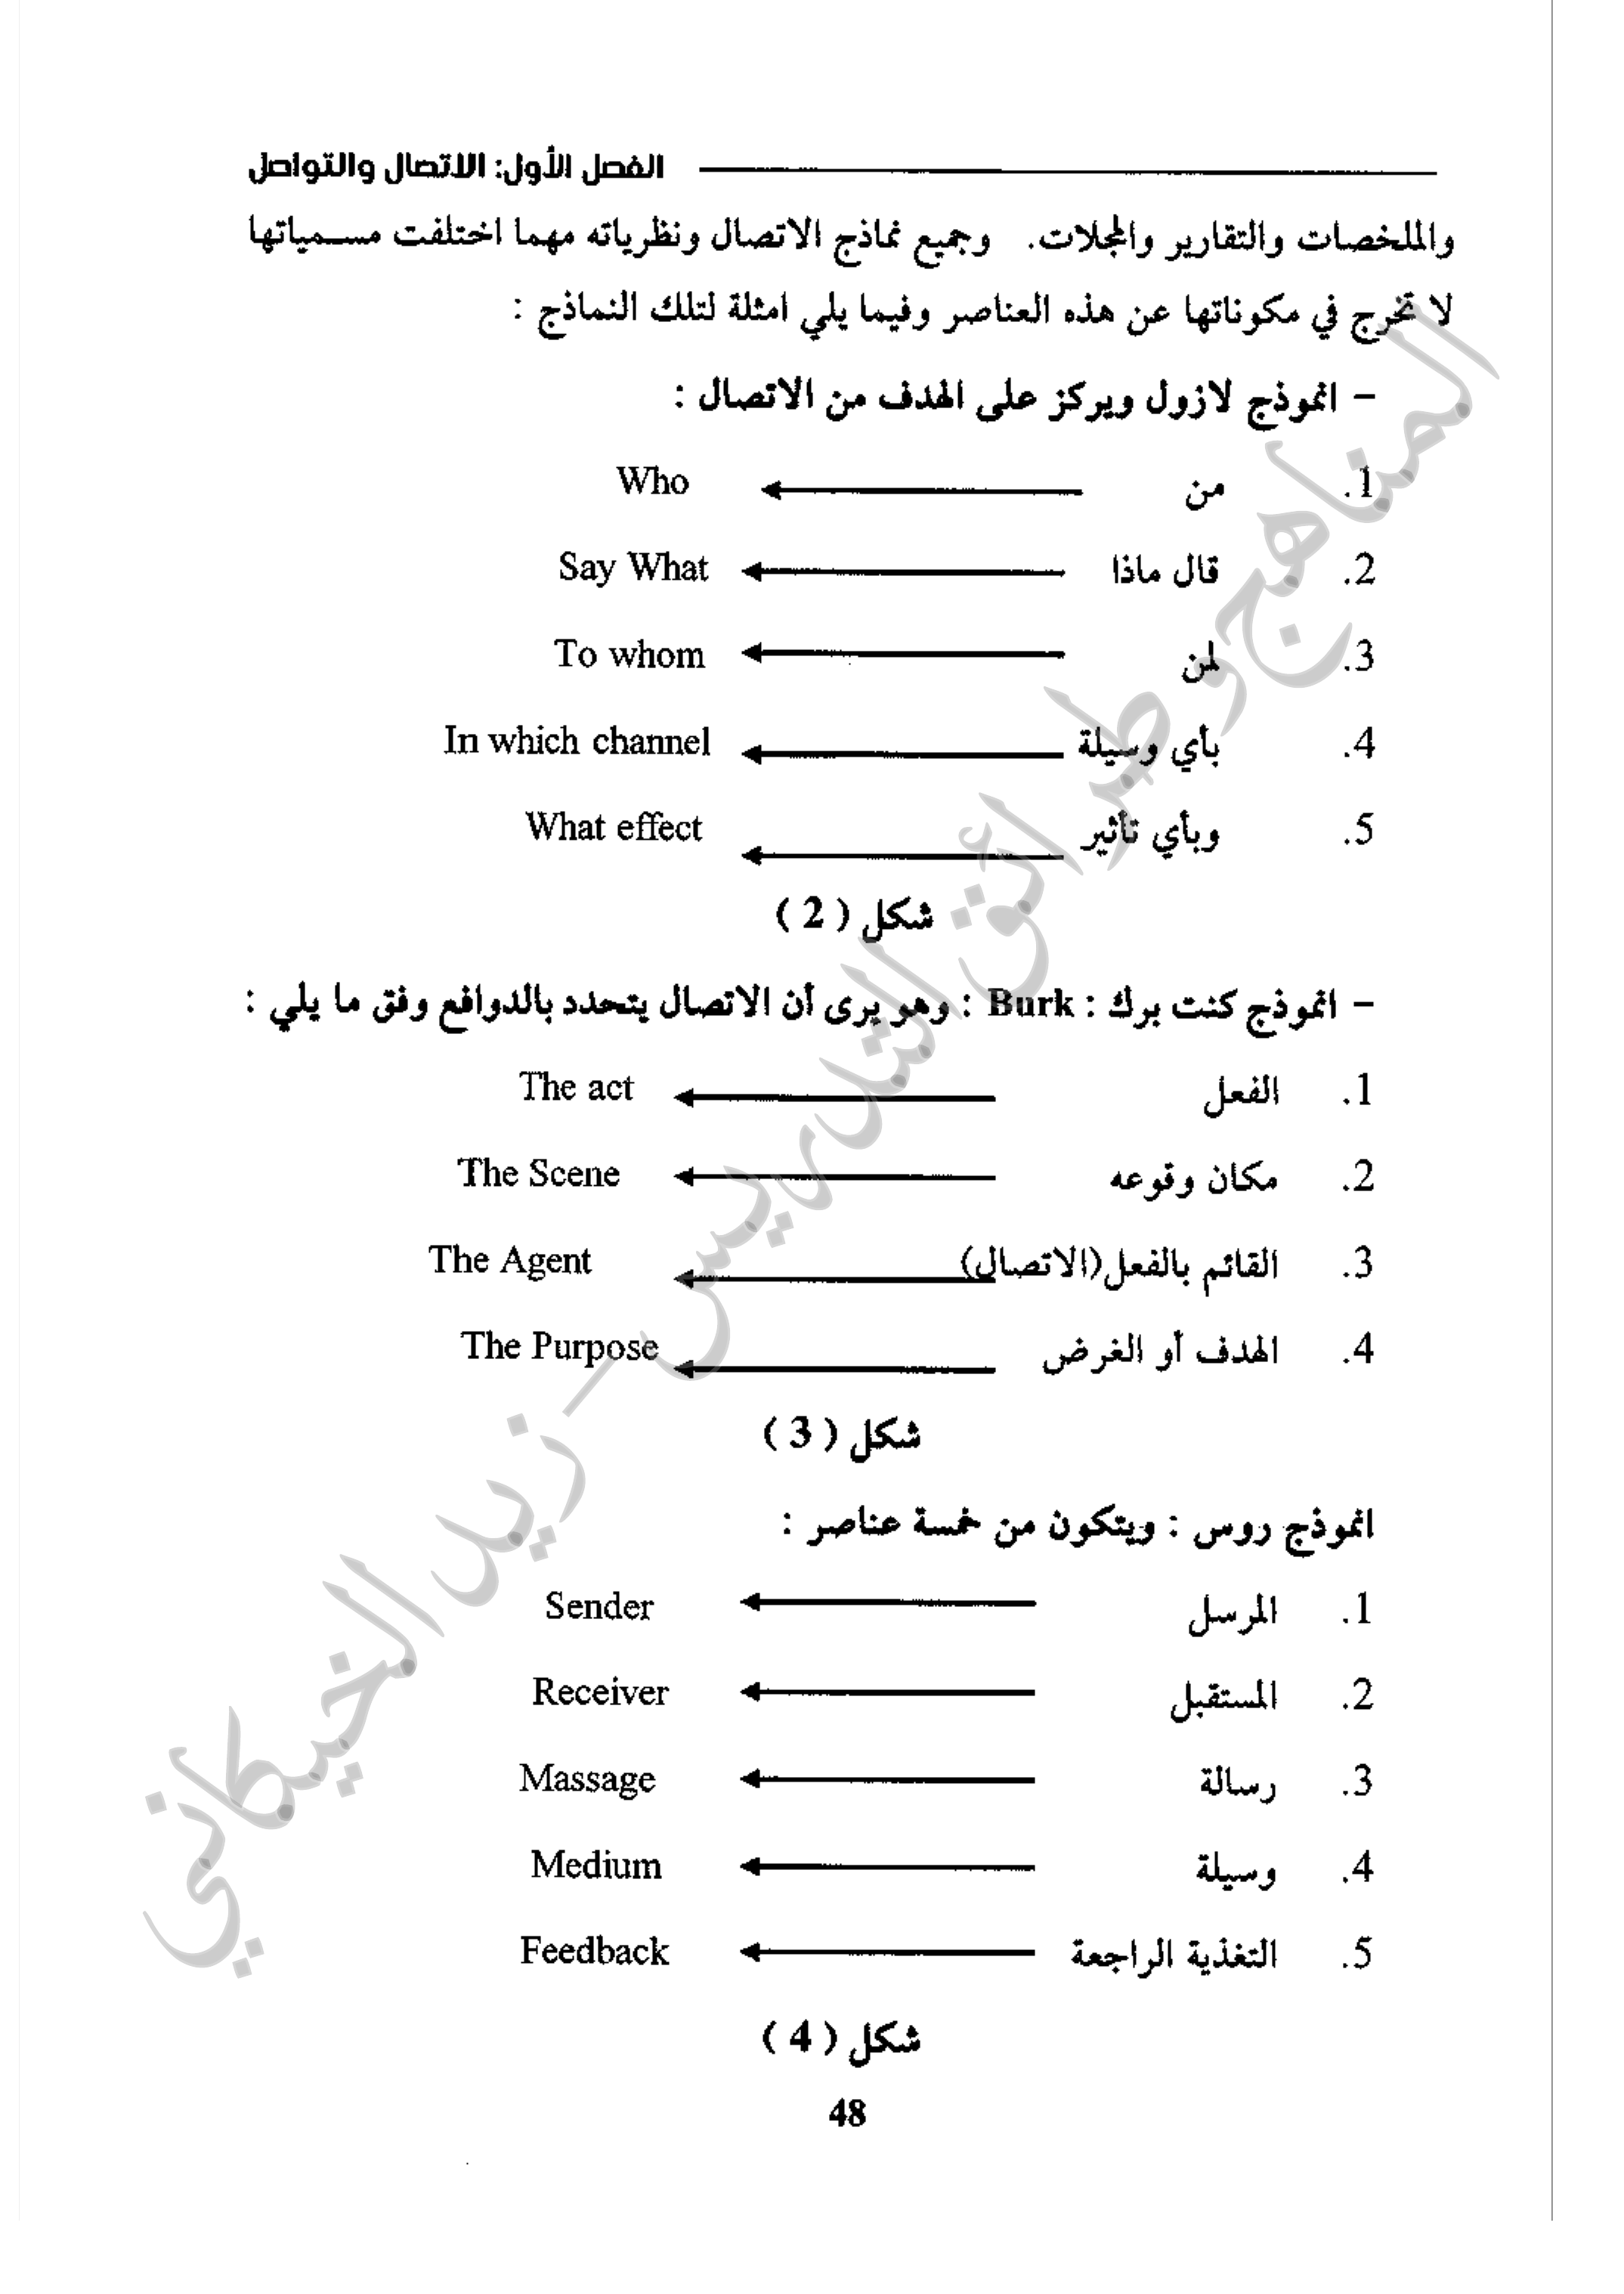 الفصل الأول: الاتصال والتواصل
والملخصات والتقارير والمجلات. وجميع نماذج الاتصال ونظرياته مهما اختلفت مسمياتها
لا تخرج في مكوناتها عن هذه العناصر وفيما يلي امثلة لتلك النماذج :
– انموذج لازول ويركز على الهدف من الاتصال :
1. من Who
2. قال ماذا Say What
3. لمن To whom
4. بأي وسيلة In which channel
5. وبأي تأثير What effect
شكل ( 2 )
– انموذج كنت برك : Burk : وهو يرى أن الاتصال يتحدد بالدوافع وفق ما يلي :
1. الفعل The act
2. مكان وقوعه The Scene
3. القائم بالفعل(الاتصال) The Agent
4. الهدف أو الغرض The Purpose
شكل ( 3 )
انموذج روس : ويتكون من خمسة عناصر :
1. المرسل Sender
2. المستقبل Receiver
3. رسالة Massage
4. وسيلة Medium
5. التغذية الراجعة Feedback
شكل ( 4 )
48
المناهج وطرائق التدريس – زيد الخيكاني